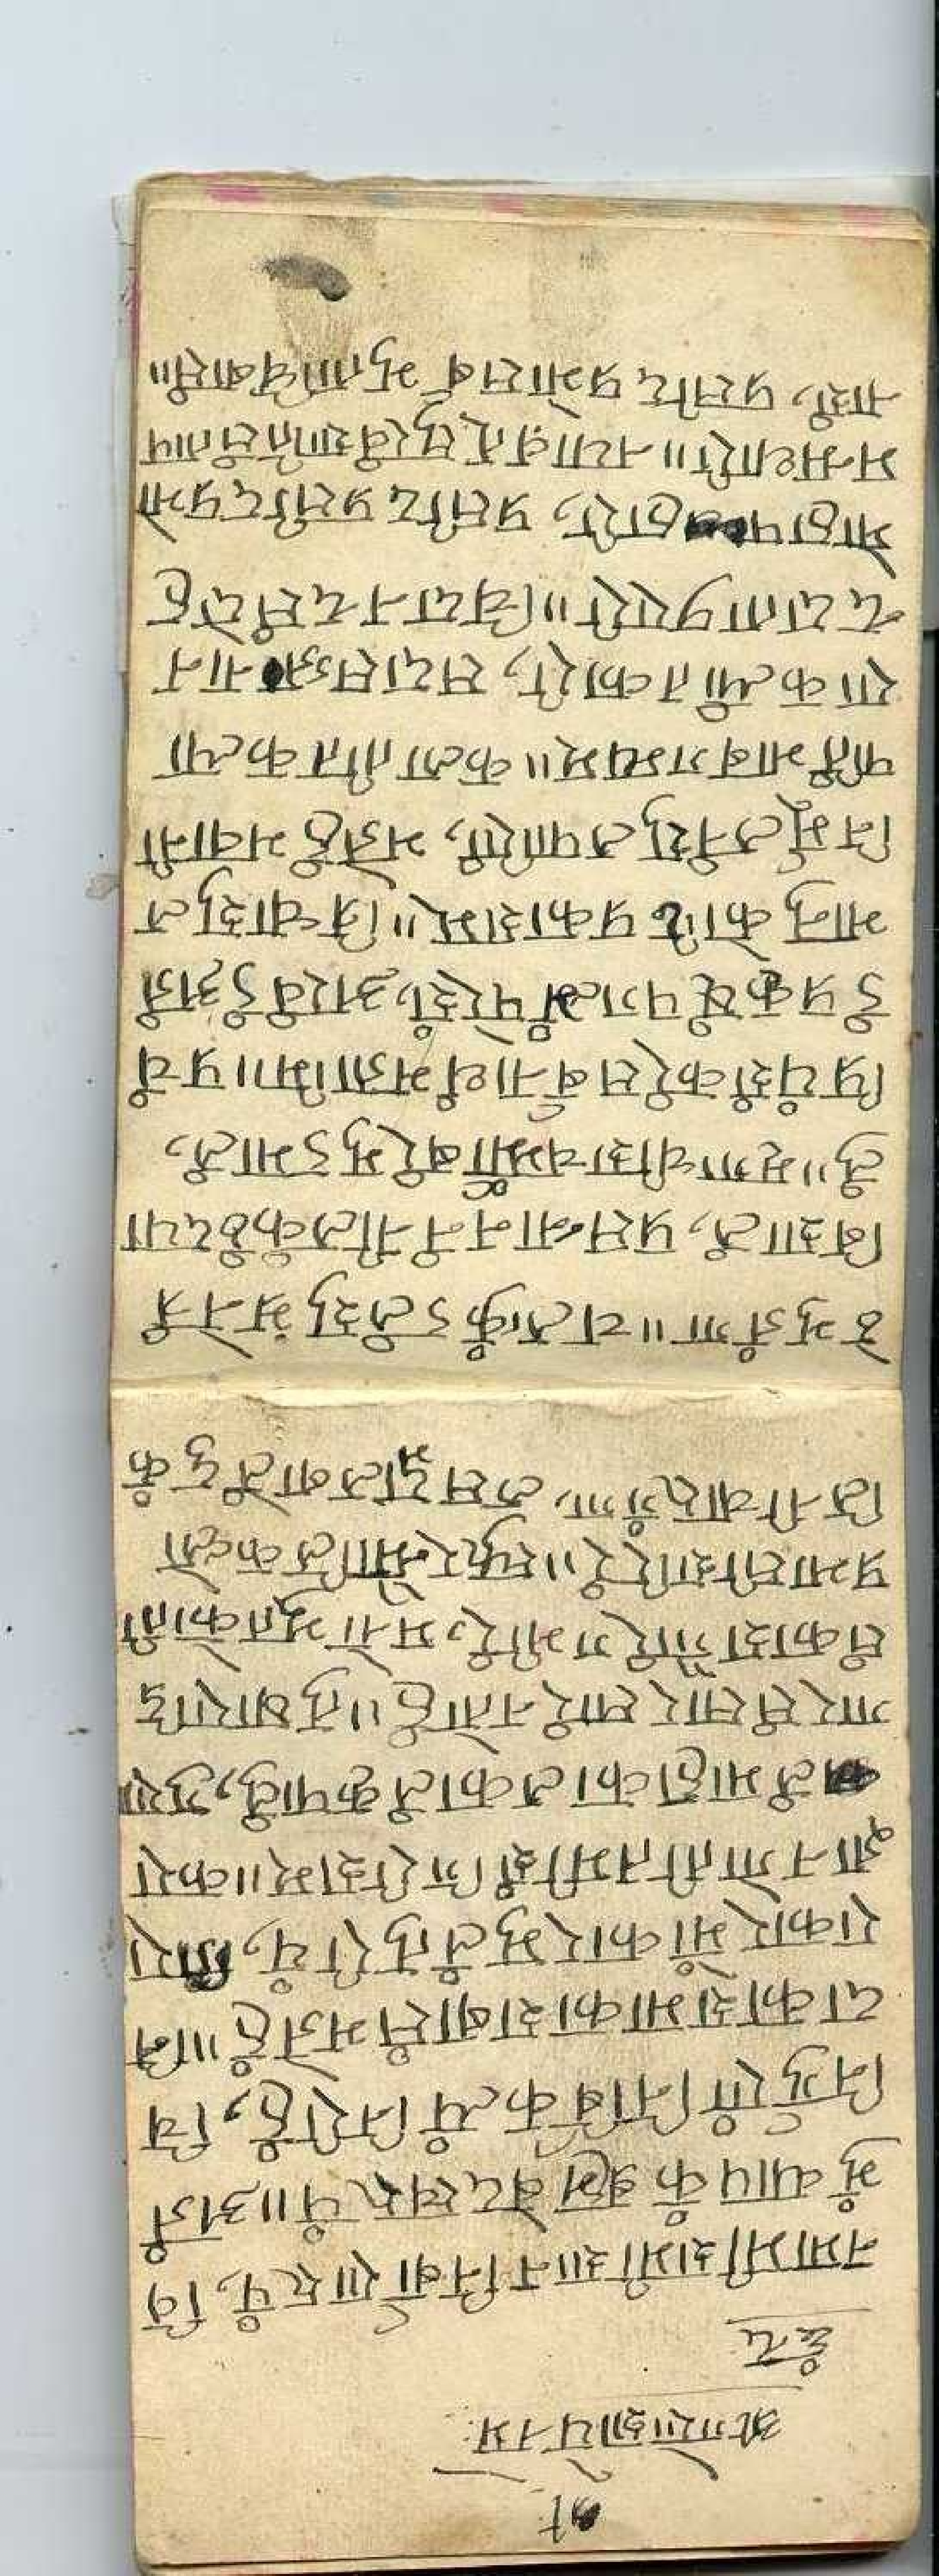 श्रीगणेशाय नमः
छंद
नमामीशमीशाननिर्वाणरूपं, वि
भुं ब्यापकं ब्रह्मवेदस्वरूपं॥ अजं
निर्गुणं निर्विकल्पं निरीहं, चि
दाकाशमाकाशवासंभजेहं॥ नि
राकारमोंकारमूलंतुरीयं, गिरा
ज्ञानगोतीतमीशंगिरीशम्॥ करा
लंमहाकालकालंकृपालं, गुणा
गारसंसारपारंनतोहं॥ तुषाराद्रि
संकाशगौरंगभीरं, मनोभूतकोटी
प्रभाश्रीशरीरं॥ स्फुरन्मौलिकल्लो
लिनीचारुगंगा, लसद्भालबालेंदुकं
ठेभुजंगा॥ चलत्कुंडलंभ्रूसुनेत्रं
विशालं, प्रसन्नाननंनीलकंठंदया
लं॥ मृगाधीशचर्मांबरंमुंडमालं,
प्रियंशंकरंसर्वनाथंभजामि॥ प्रचं
डंप्रकृष्टंप्रगल्भंपरेशं, अखंडंअजं
भानुकोटिप्रकाशम्॥ त्रयःशूल
निर्मूलनंशूलपाणिं, भजेहंभवानी
पतिंभावगम्यम्॥ कलातीतकल्या
णकल्पांतकारी, सदासज्जनान
ददातापुरारी॥ चिदानंदसंदोह
मोहापहारी, प्रसीदप्रसीदप्रभो
मन्मथारी॥ नतावत्सुखंशांतिसंताप
नाशं, प्रसीदप्रभोसर्वभूताधिवासं॥